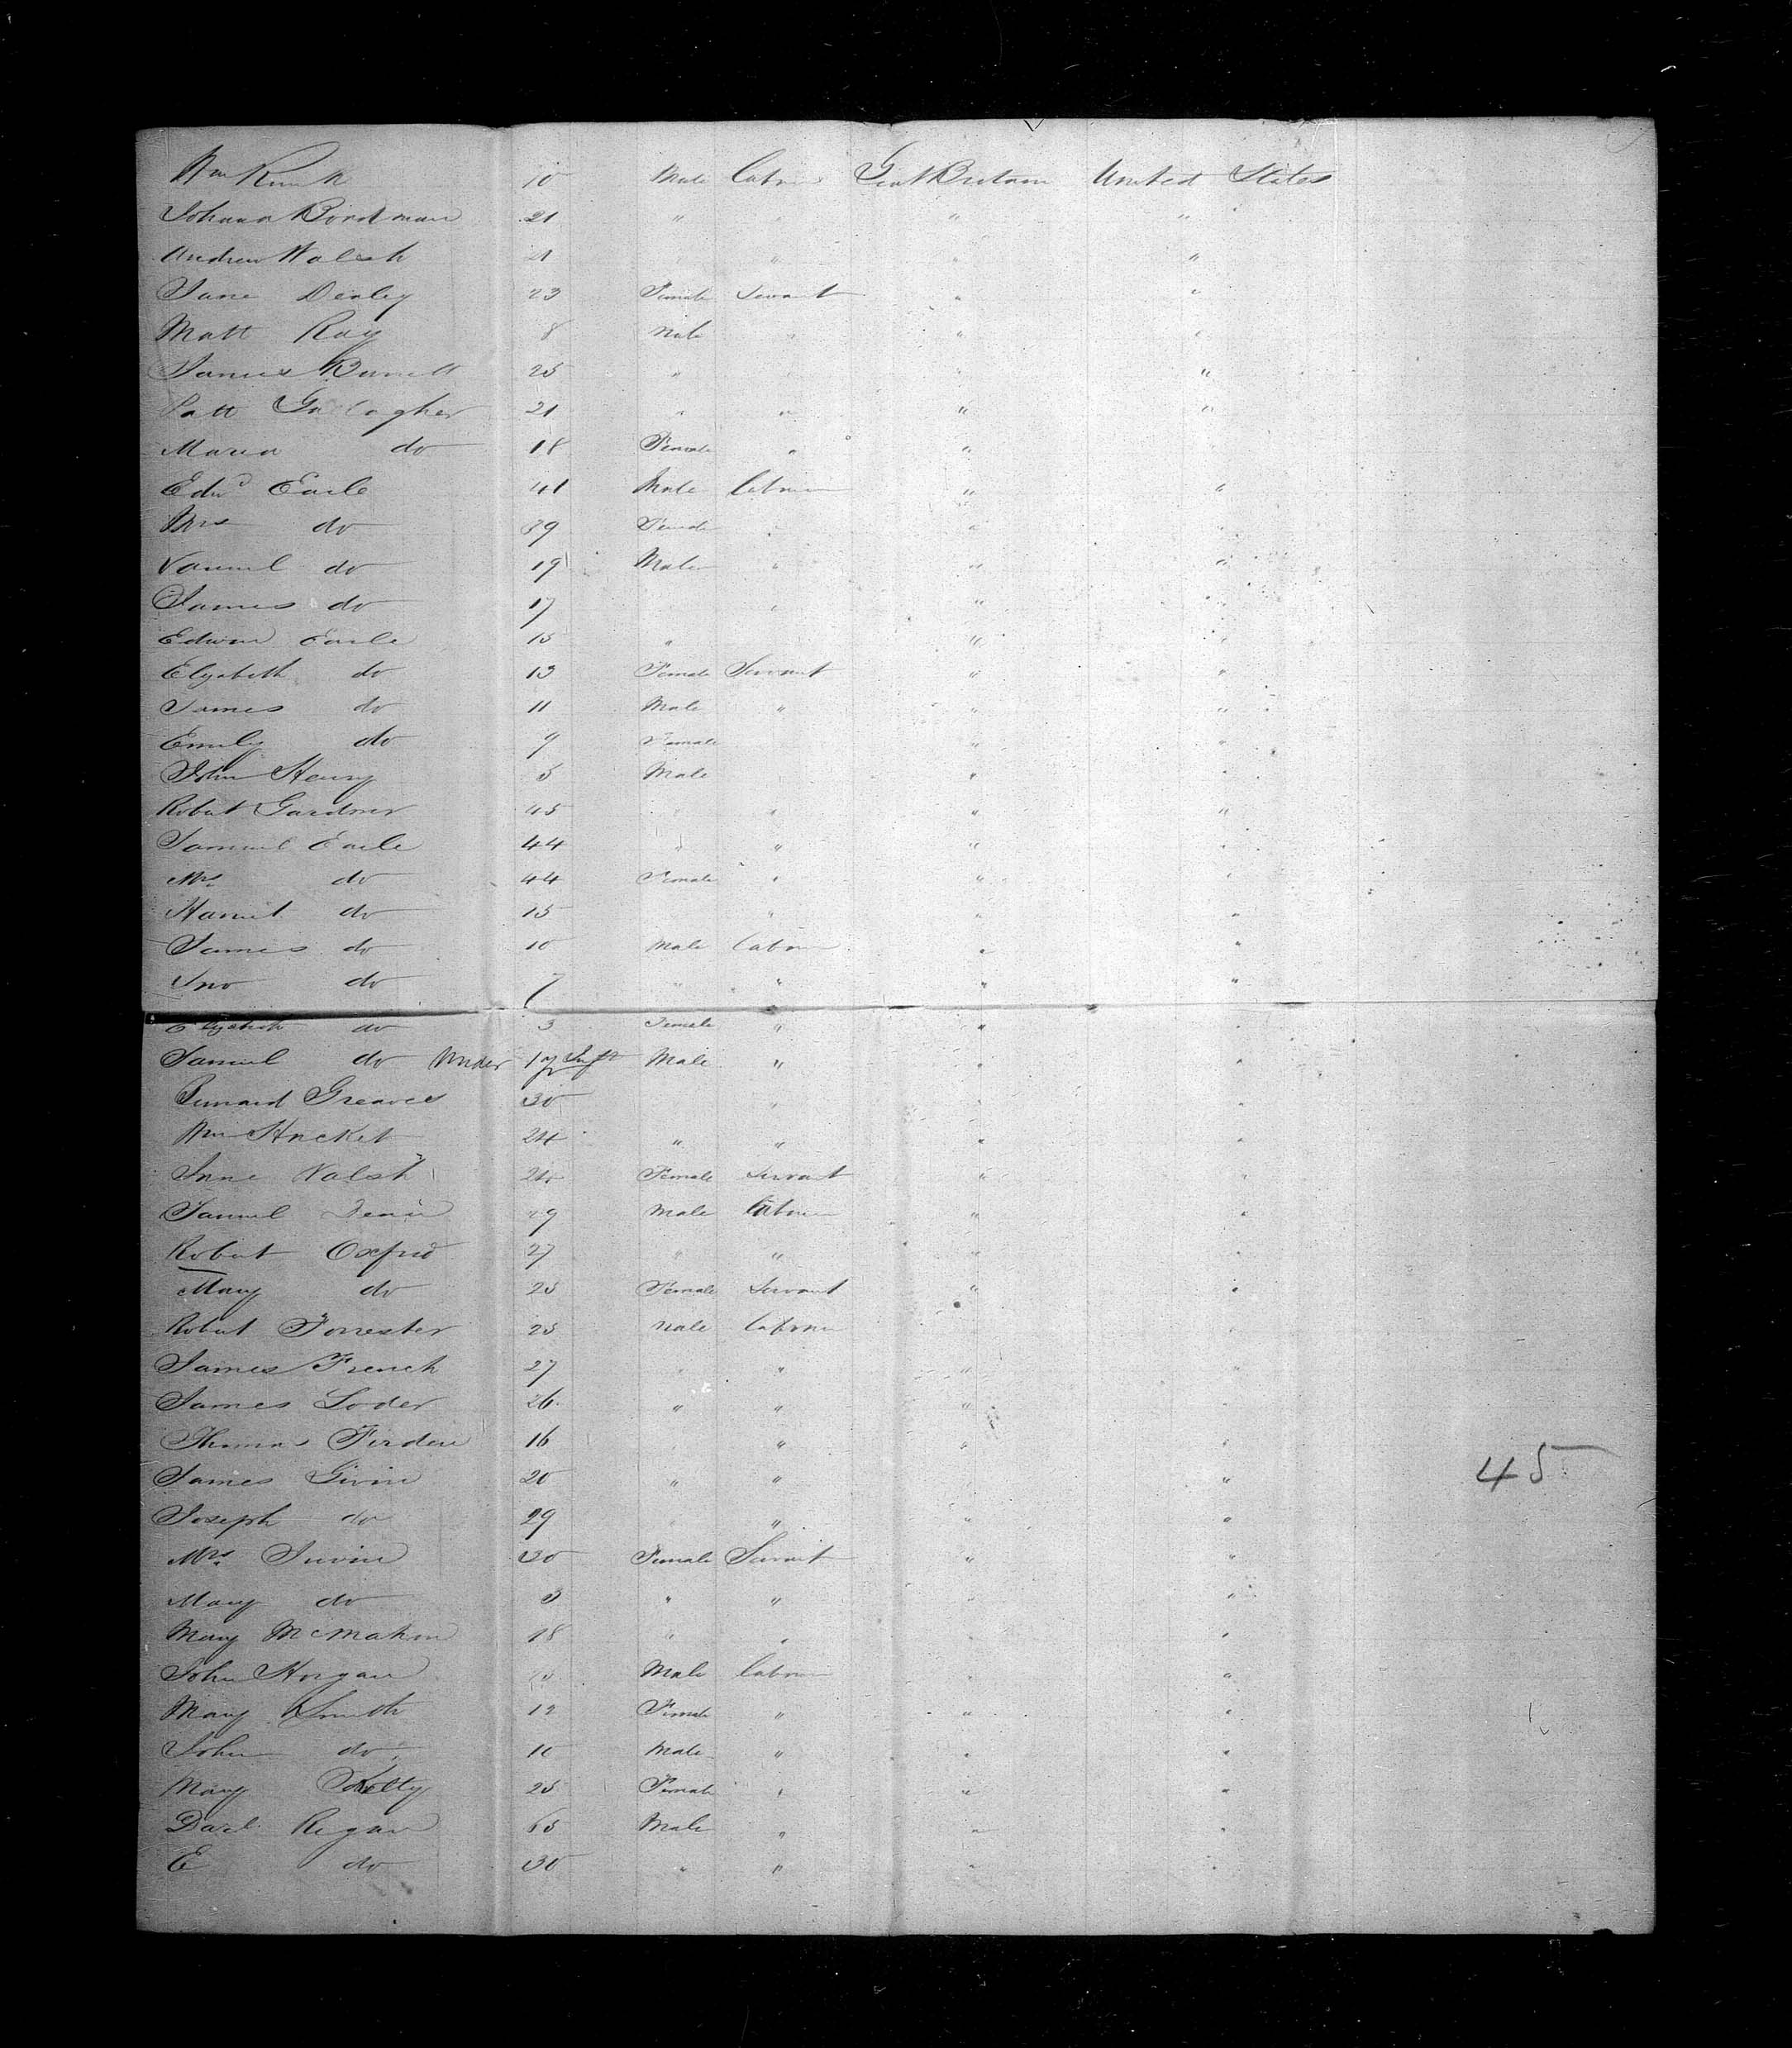 Wm 10 Male Labour Great Britain United States
Johana Bordman 21 " " " "
Andrew Walsh 21 " " "
Jane Denley 23 Female Servant " "
Matt Ray 8 Male " " "
James 25 " " " "
Patt Gallagher 21 " " " "
Maria do 18 Female " "
Edwd Earle 41 Male Labour " "
Mrs do 39 Female " " "
Samuel do 19 Male " " "
James do 17 " " "
Edwin Earle 15 " " "
Elizabeth do 13 Female Servant " "
James do 11 Male " " "
Emily do 9 Female " "
John Henry 5 Male " "
Robert Gardner 45 " " " "
Samuel Earle 44 " " " "
Mrs do 44 Female " " "
Harriet do 15 " " "
James do 10 Male Labour " "
Jno do 7 " " " "
Elizabeth do 3 Female " " "
Samuel do Under 1 yr Inft Male " " "
Greaves 30 " " "
Wm Hacket 24 " " " "
Jane Walsh Female Servant " "
Samuel 29 Male Labour " "
Robert Oxford 27 " " " "
Mary do 25 Female Servant " "
Robert Forrester 25 Male Labour " "
James French 27 " " " "
James Loder 26 " " " "
Thomas 16 " " "
James Givin 20 " " " 45
Joseph do 29 " " "
Mrs Irvin 30 Female Servant " "
Mary do 3 " " " "
Mary McMahon 18 " " "
John Horgan Male Labour " "
Mary Smith 12 Female " " "
John do 10 Male " " "
Mary Kelly 25 Female " " "
Danl Regan 65 Male " " "
E do 30 " " " "